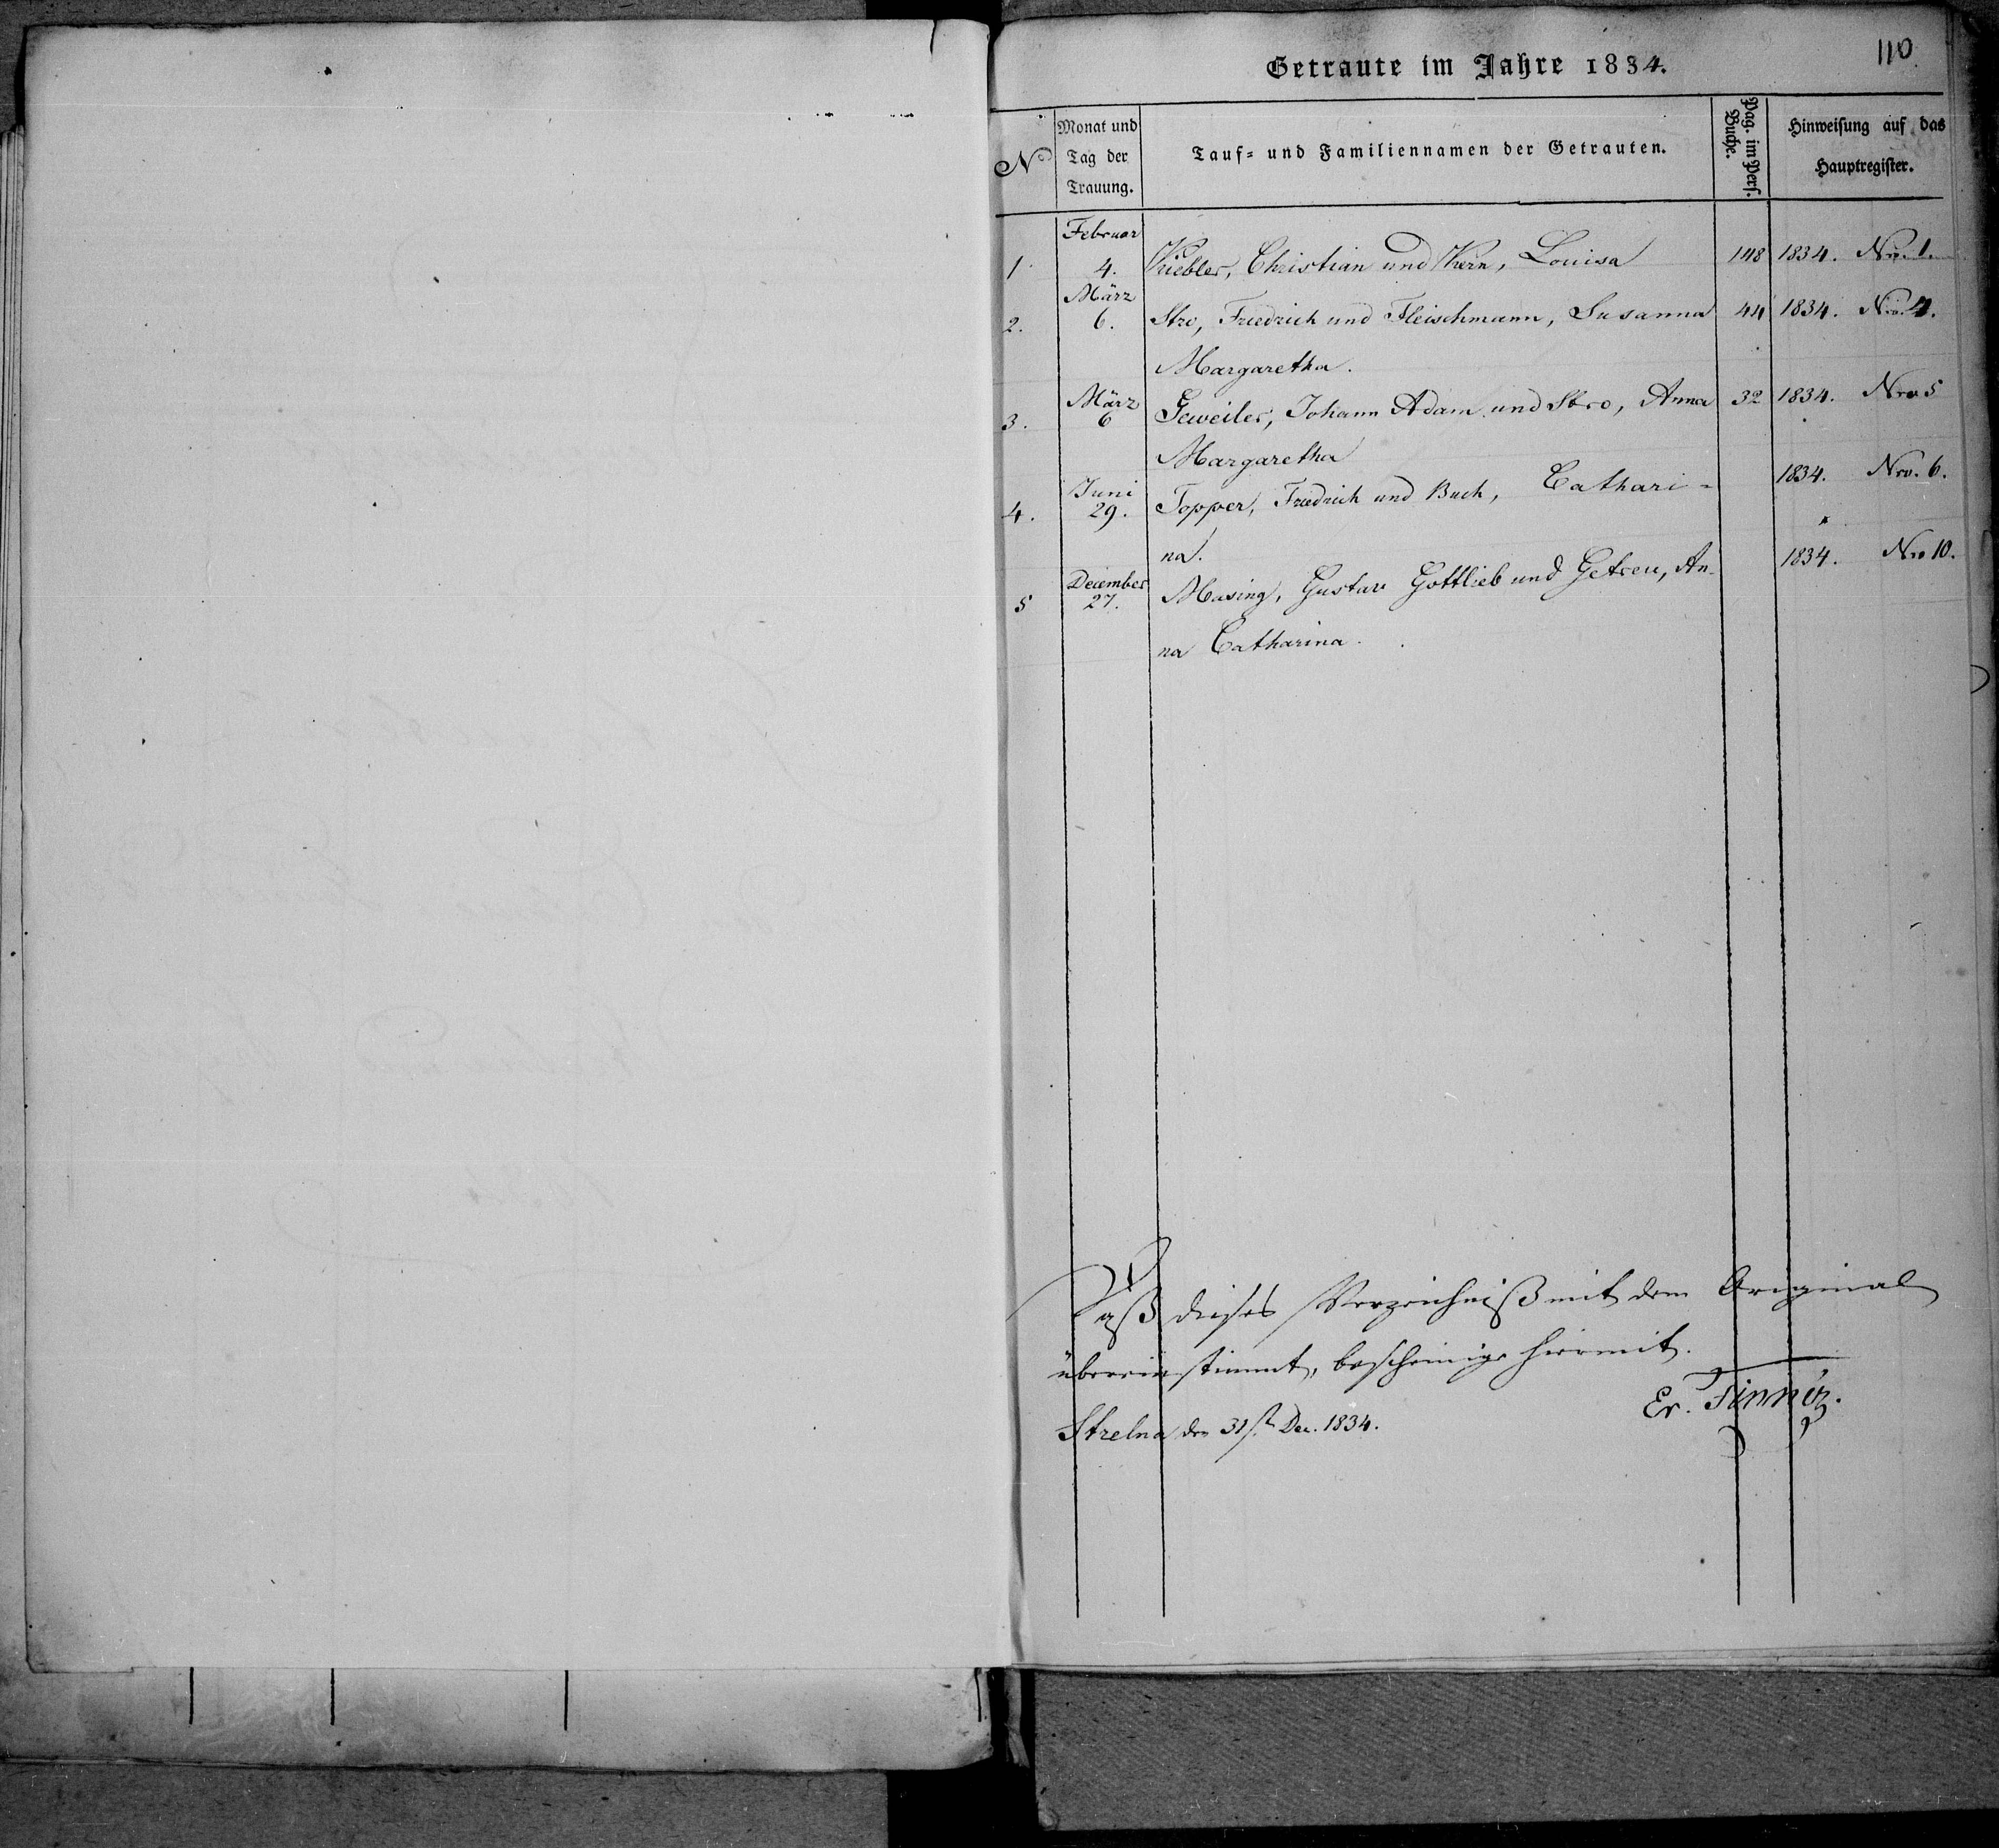 110
Getraute im Jahre 1834.
No
Monat und
Tag der
Trauung.
Tauf- und Familiennamen der Getrauten.
Pag. im Pers.
Buche.
Hinweisung auf das
Hauptregister.
Februar
1. 4. Kiebler, Christian und Kern, Louisa 148 1834. Nro. 1.
März
2. 6. Stro, Friedrich und Fleischmann, Susanna 44 1834. Nro. 4.
Margaretha.
März
3. 6 Geweiler, Johann Adam und Stro, Anna 32 1834. Nro 5
Margaretha
Juni
4. 29. Topper, Friedrich und Buch, Cathari- 1834. Nro. 6.
na.
December
5 27. Masing, Gustav Gottlieb und Getreu, An- 1834. Nro 10.
na Catharina.
Daß dieses Verzeichniß mit dem Original
übereinstimmt, bescheinige hiermit.
Er. Finnér.
Strelna den 31st Dec. 1834.